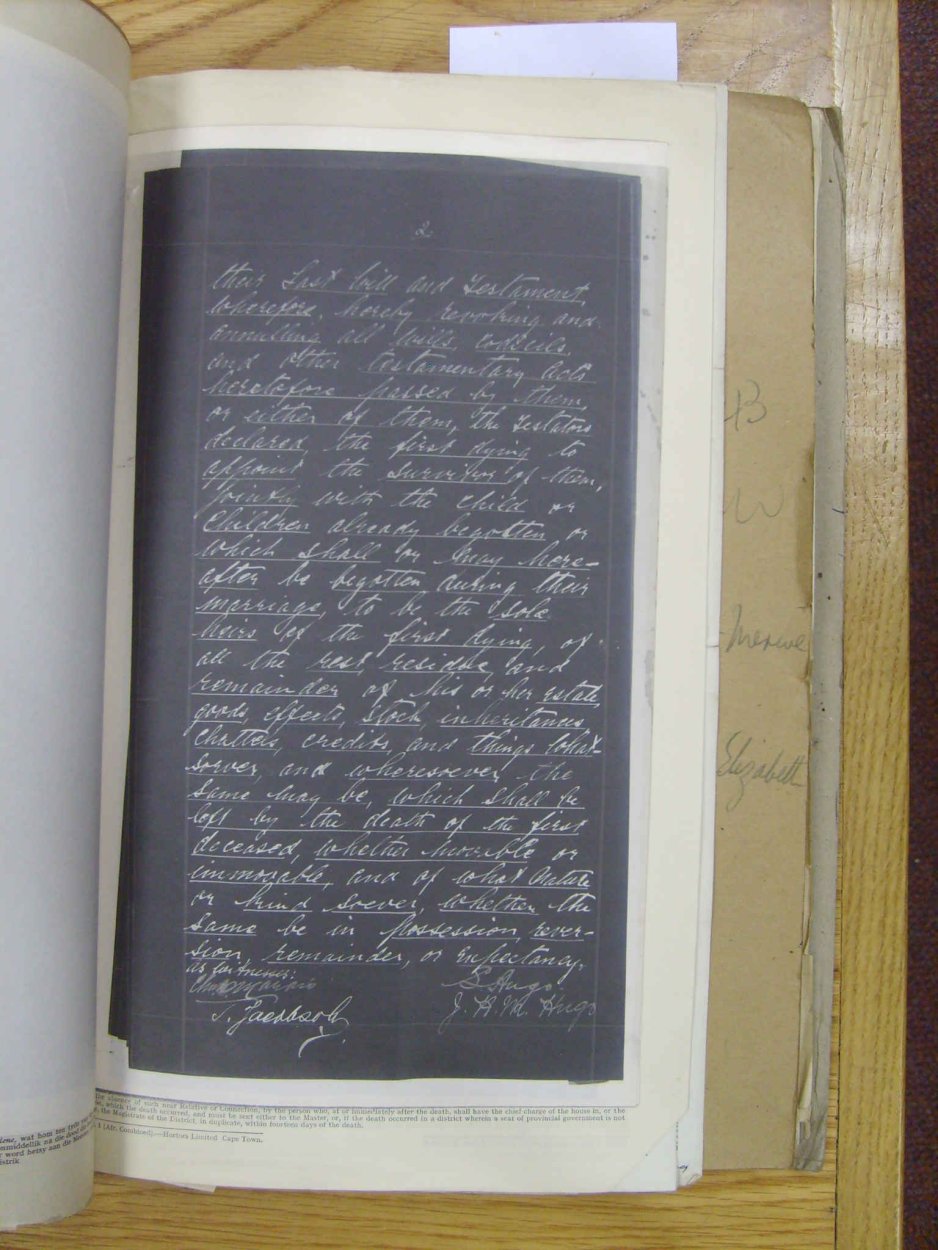 2.
their Last Will and Testament,
wherefore, hereby revoking and
annulling all Wills, Codicils,
and other testamentary acts
heretofore passed by them,
or either of them, the Testators
declared, the first dying to
appoint the survivor of them,
jointly with the child or
children already begotten or
which shall or may here-
after be begotten during their
marriage, to be the sole
heirs of the first dying, of
all the rest, residue, and
remainder of his or her estate,
goods, effects, stock, inheritances,
chattels, credits, and things what-
soever, and wheresoever, the
same may be, which shall be
left by the death of the first
deceased, whether movable or
immovable, and of what nature
or kind soever, whether the
same be in possession, rever-
sion, remainder, or expectancy.
As Witnesses:
S Hugo
J. H. M. Hugo
T. Jacobsohn
the absence of such near Relative or Connection, by the person who, at or immediately after the death, shall have the chief charge of the house in, or the
which the death occurred, and must be sent either to the Master, or, if the death occurred in a district wherein a seat of provincial government is not
the Magistrate of the District, in duplicate, within fourteen days of the death.
1 [Afr. Combined].—Hortors Limited Cape Town.
Merwe
Elizabeth